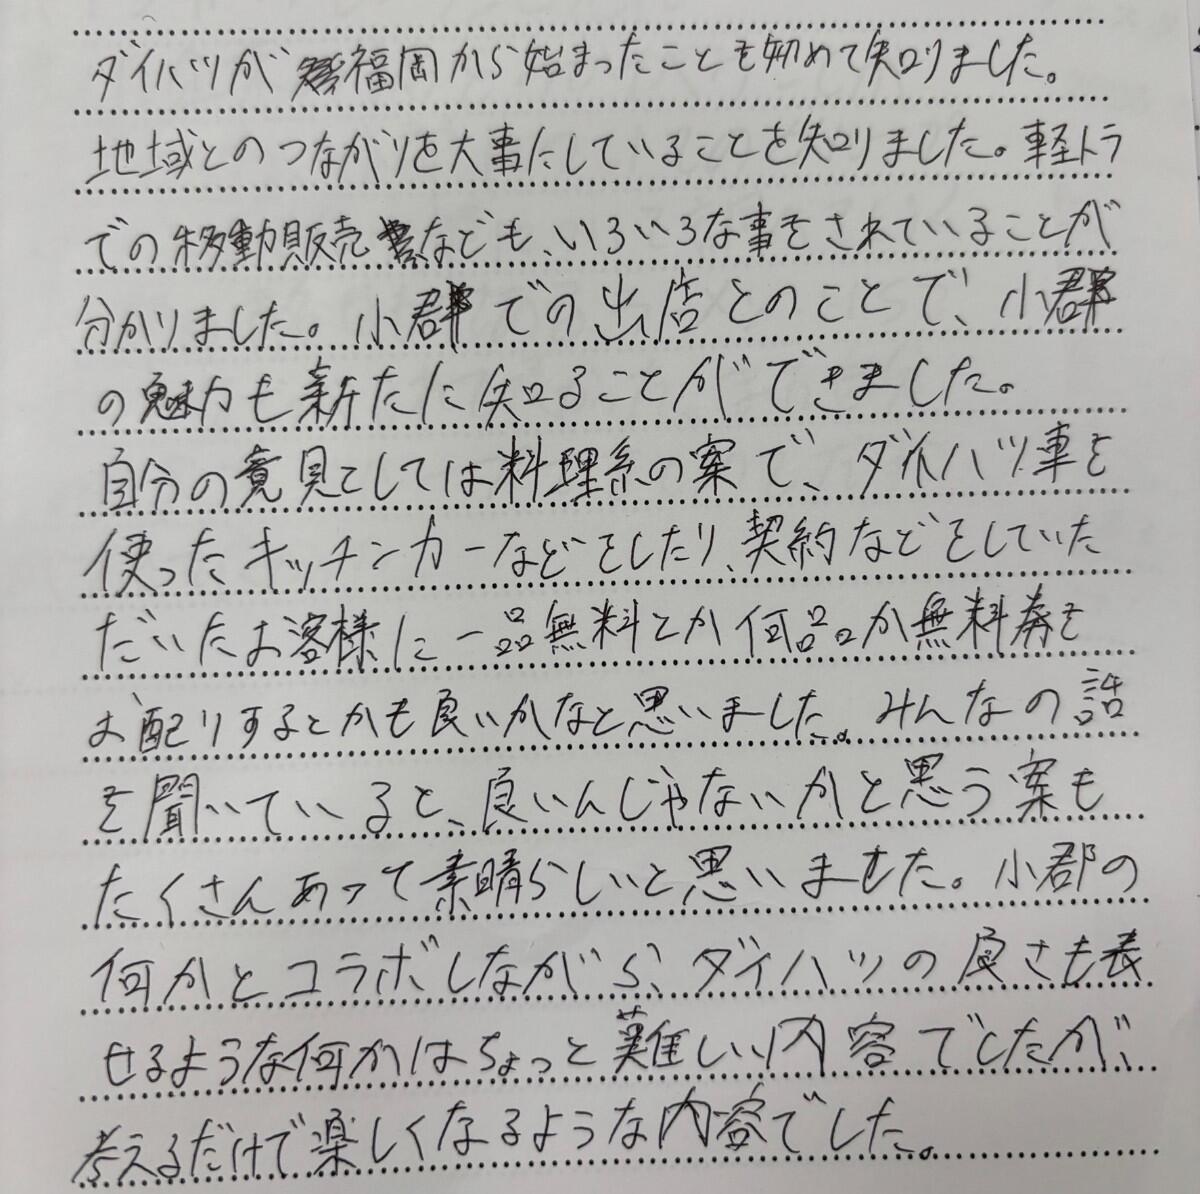 ダイハツが福岡から始まったことも初めて知りました。
地域とのつながりを大事にしていることを知りました。軽トラ
での移動販売なども、いろいろな事をされていることが
分かりました。小群での出店とのことで、小群
の魅力も新たに知ることができました。
自分の意見としては料理系の案で、ダイハツ車を
使ったキッチンカーなどをしたり、契約などをしていた
だいたお客様に一品無料とか何品か無料券を
お配りするとかも良いかなと思いました。みんなの話
を聞いていると、良いんじゃないかと思う案も
たくさんあって素晴らしいと思いました。小郡の
何かとコラボしながら、ダイハツの良さも表
せるような何かはちょっと難しい内容でしたが、
考えるだけで楽しくなるような内容でした。